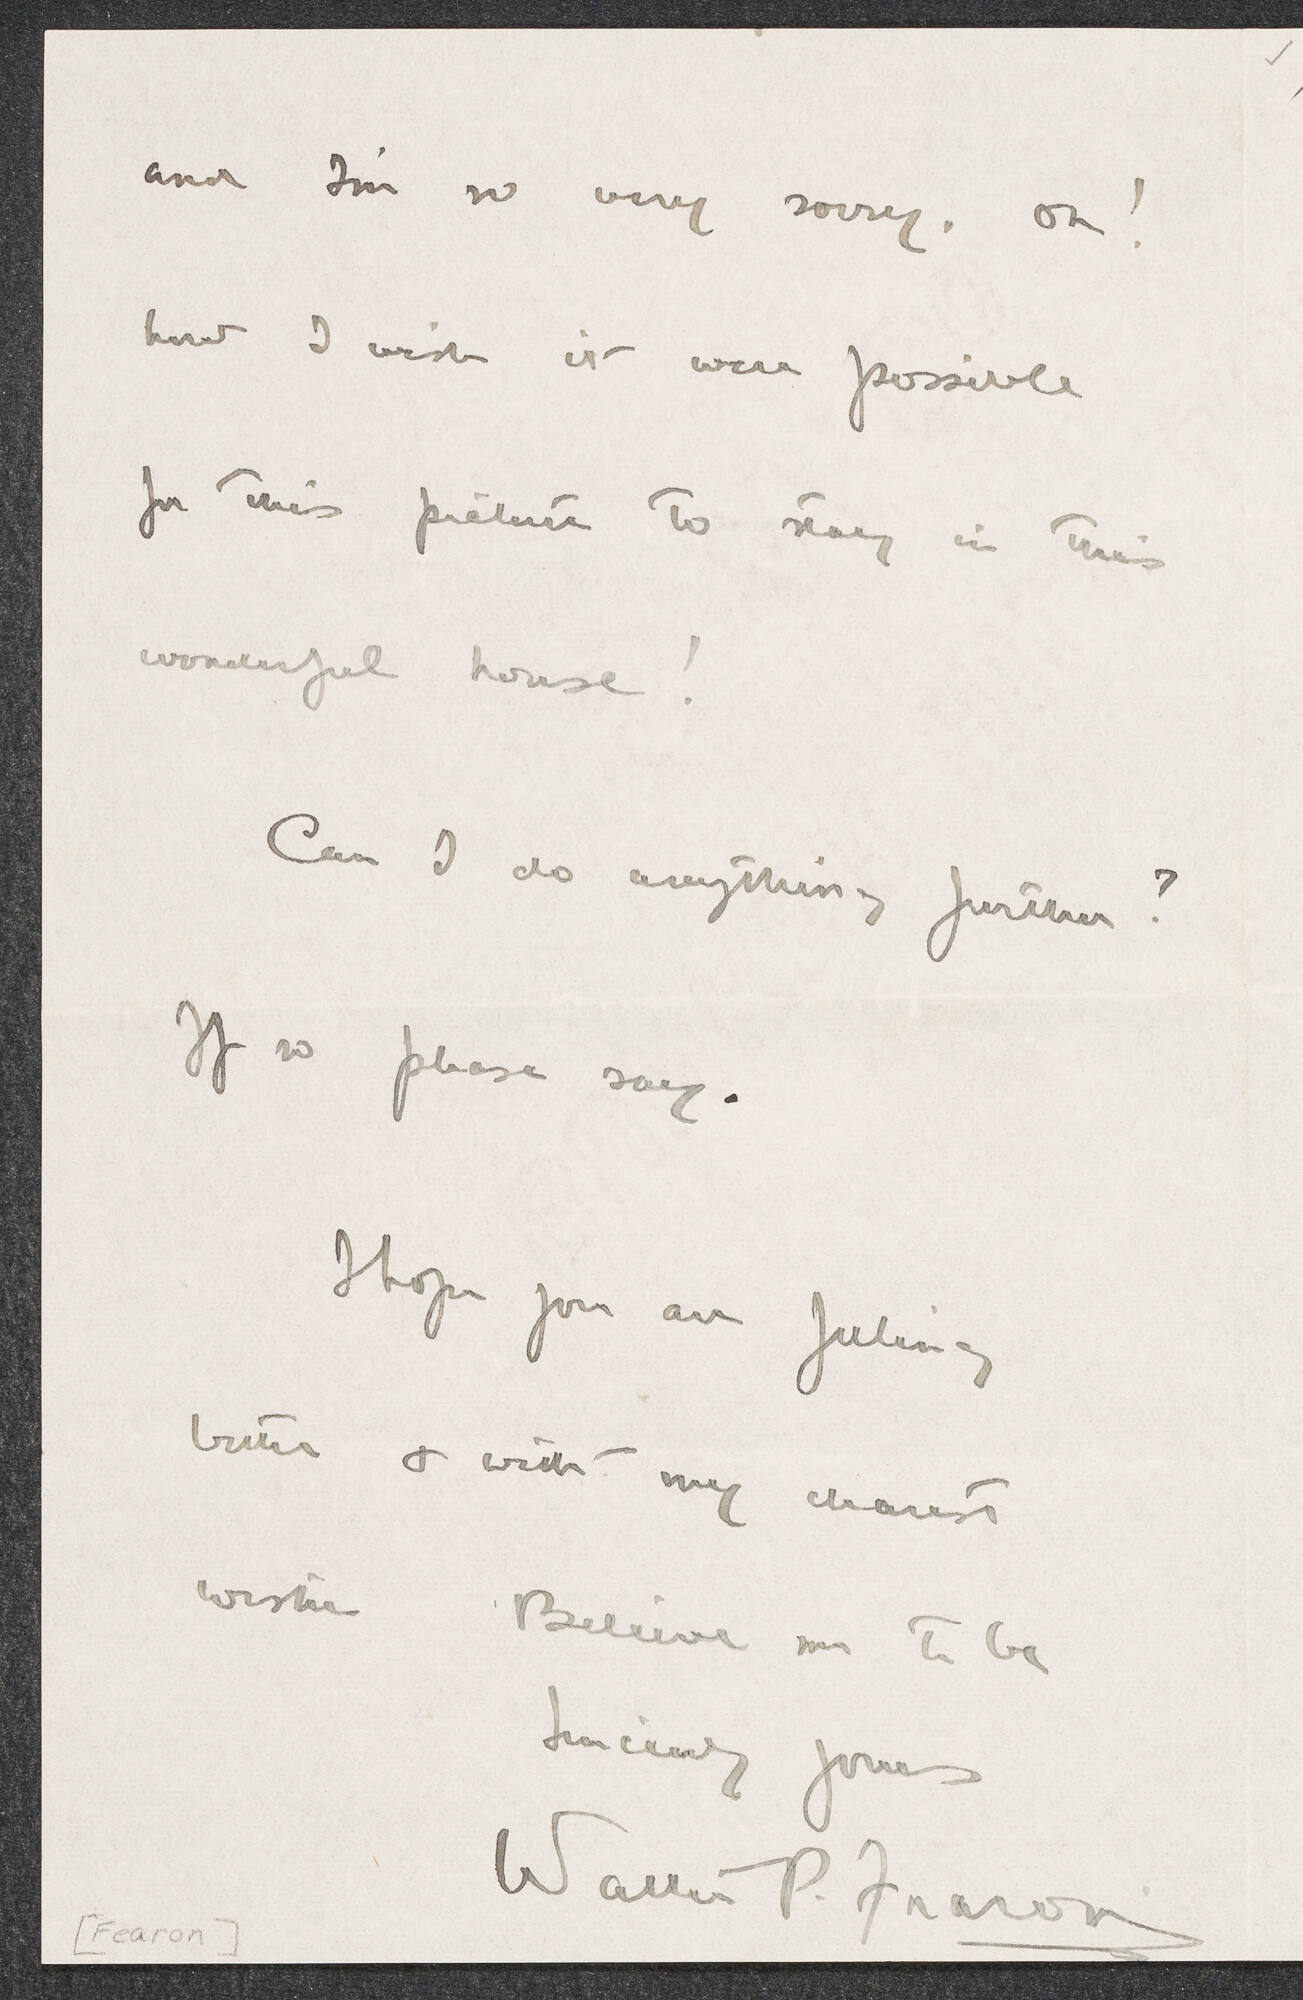 and I'm so very sorry. Oh!
how I wish it were possible
for this picture to stay in this
wonderful house!
Can I do anything further?
If so please say.
I hope you are feeling
better & with my dearest
wishes Believe me to be
Sincerely yours
Walter P. Fearon
[Fearon]